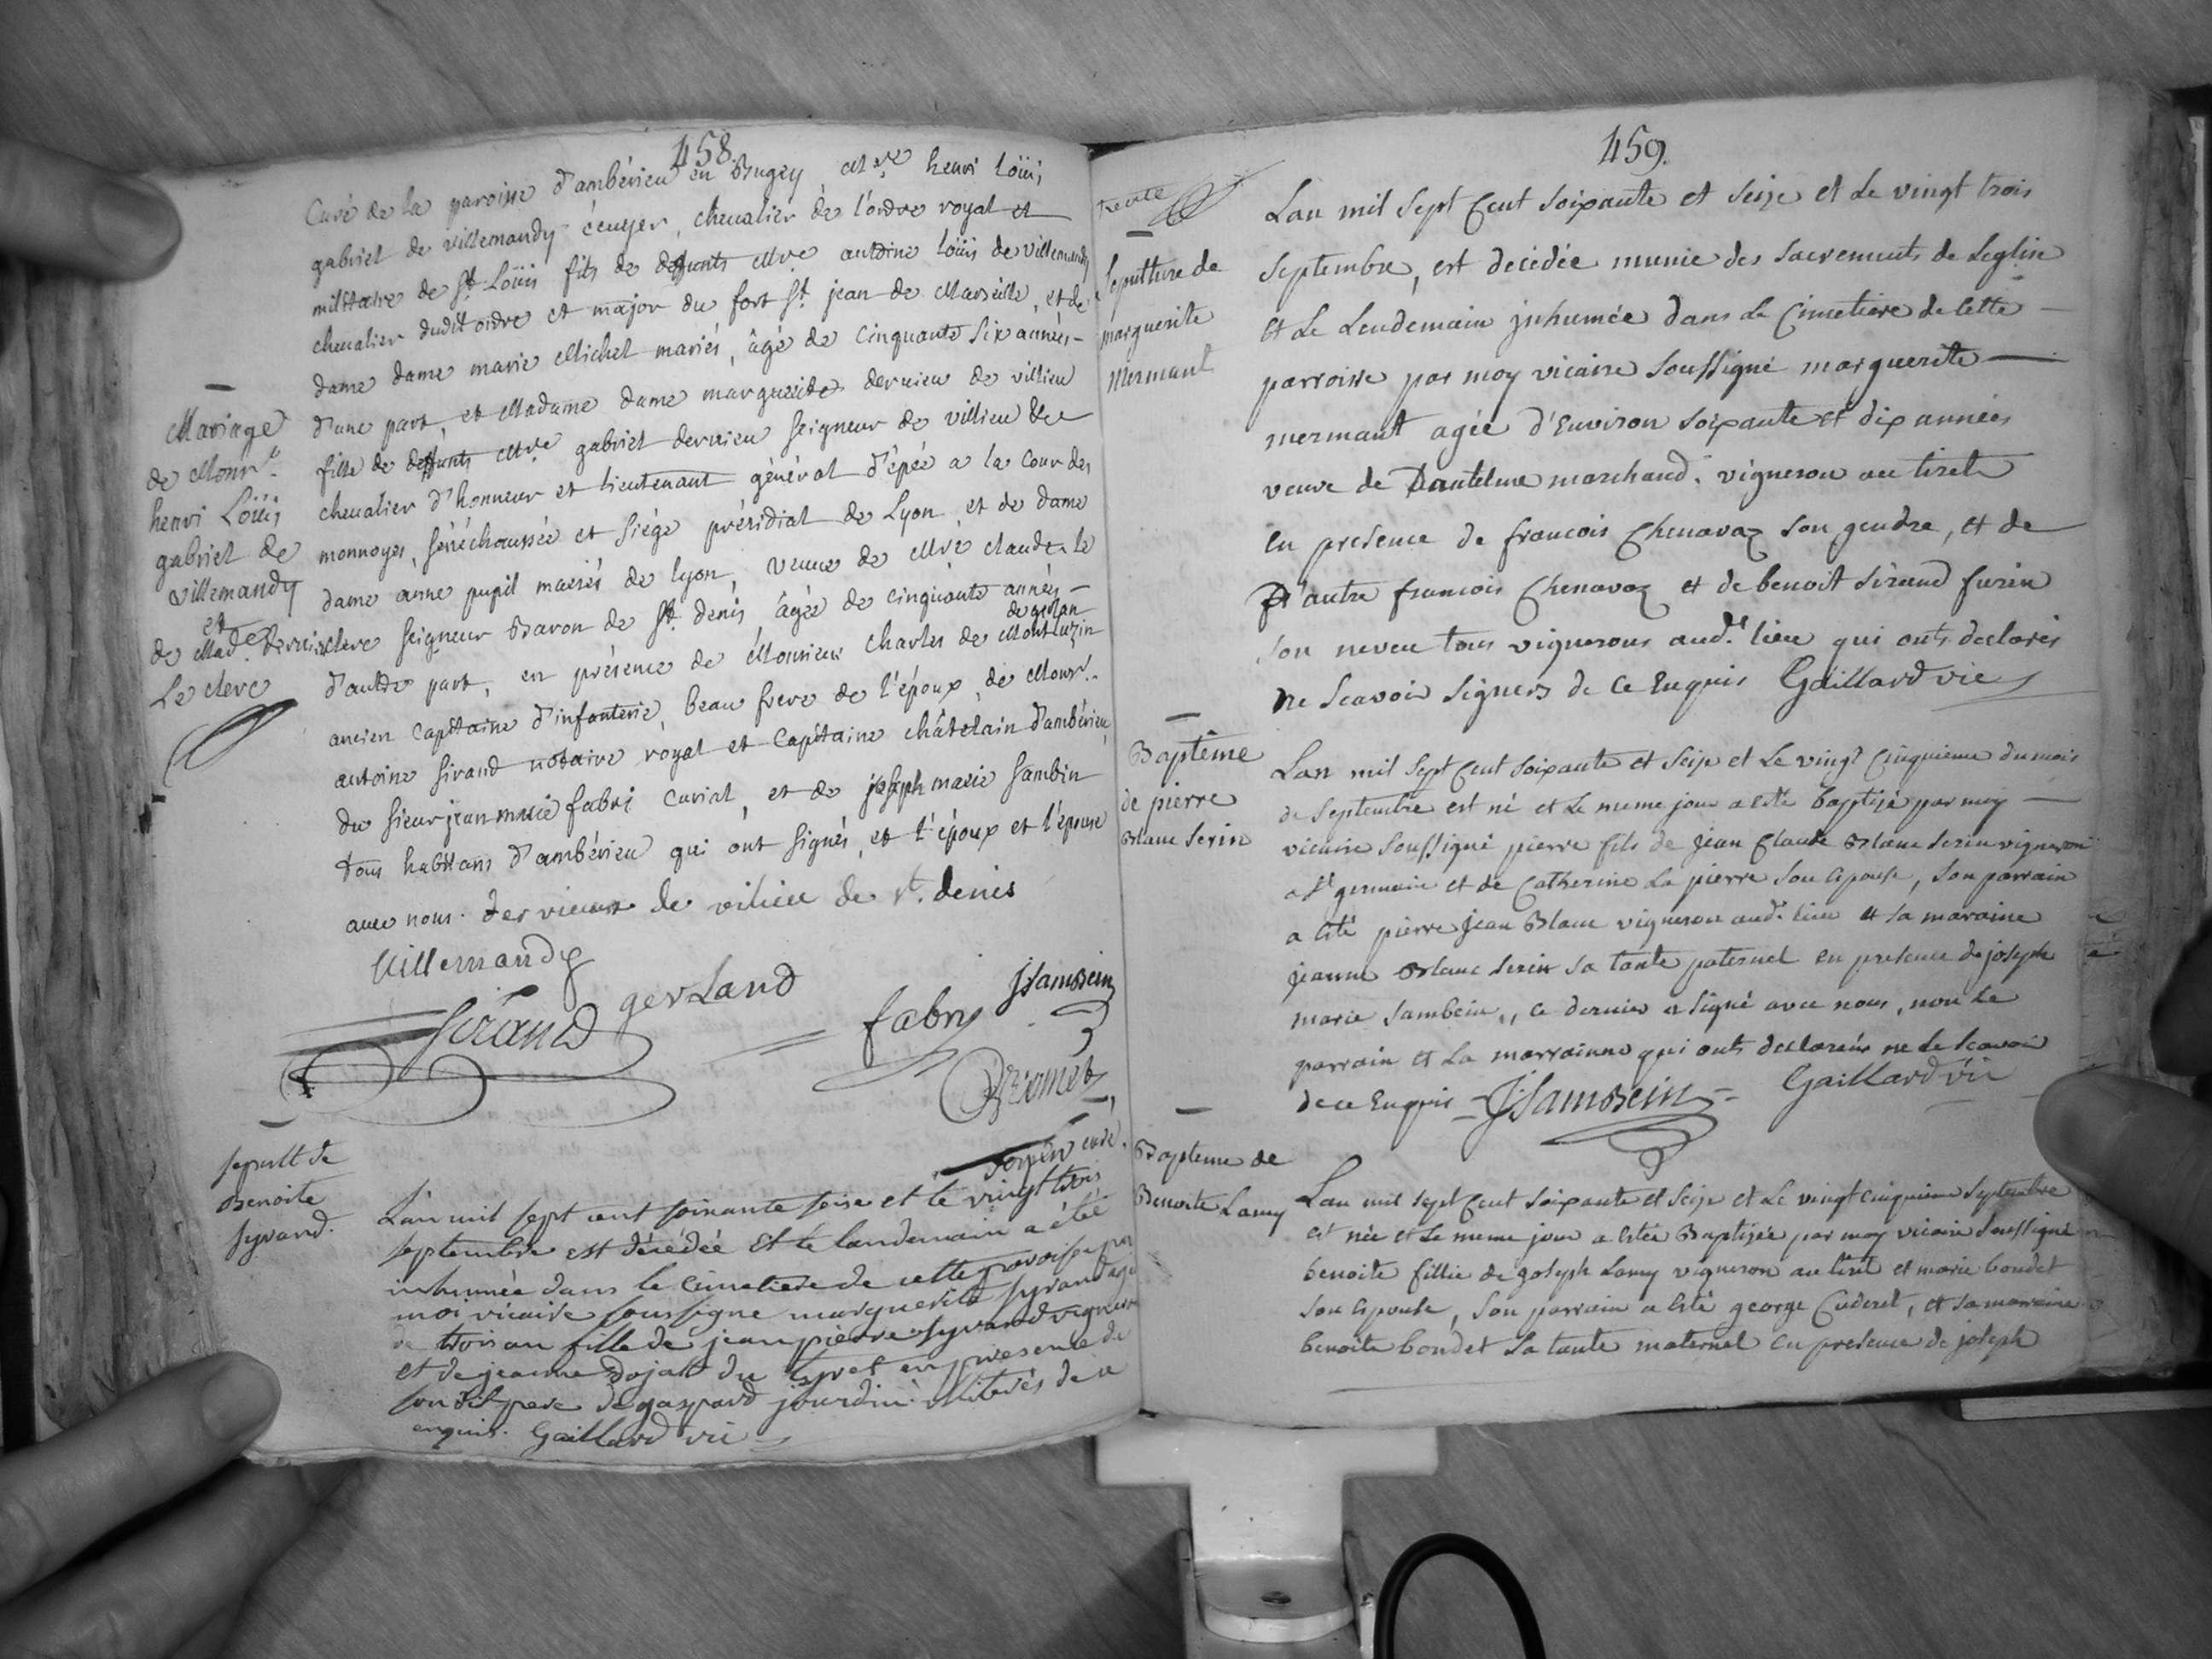 458.
Curé de la paroisse d'ambérieu en Bugey, Mre henri Loüis
gabriel de villemandy écuyer, chevalier de l'ordre royal et
militaire de St Loüis fils de deffunts Mre antoine loüis de villemandy
chevalier dudit ordre et major du fort St jean de Marseille, et de
dame dame marie Michel mariés, âgé de cinquante six années
d'une part, et Madame dame marguerite dervieu de villieu
fille de deffunts Mre gabriel dervieu seigneur de villieu &c
chevalier d'honneur et lieutenant général d'épée a la cour des
monnoyes, sénéchaussée et siége présidial de Lyon, et de dame
dame anne pupil mariés de lyon, veuve de Mre claude le
clerc seigneur Baron de St denis, âgée de cinquante années
d'autre part, en présence de Monsieur charles de Montluzin
de gerlan
ancien capitaine d'infanterie, beau frere de l'époux, de Monsr.
antoine sirand notaire royal et capitaine châtelain d'ambérieu,
du sieur jean marie fabri curial, et de joseph marie sambin
tous habitans d'ambérieu qui ont signés, et l'époux et l'épouse
avec nous. dervieux de vilieu de st. denis
Villemandy
gerland
Sirand
fabry
JSambein
curé.
Mariage
de Monsr.
henri Loüis
gabriel de
villemandy
et
de Made. dervieu
Le clerc
sepult de
Benoite
syrand.
L'an mil sept cent soixante seise et le vingt trois
septembre est décédée et le landemain a été
inhumée dans le cimetiere de cette paroisse par
moi vicaire soussigne marguerite syrand agé
de trois an fille de jean pierre syrand vigneron
et de jeanne Dojat du tyret en presence de
son dit pere de gaspard jourdin illiterés de ce
enquis. Gaillard vic
459.
Sepulture de
marguerite
Mermant
Lan mil sept Cent soixante et seize et Le vingt trois
septembre, est decédée munie des sacrements de Leglise
et Le Lendemain jnhumée dans Le Cimetiere de Cette
parroisse par moy vicaire soussigné marguerite
mermant agée d'Environ soixante et dix années
veuve de Dantelme marchand. vigneron au tiret
En presence de francois Chenavaz son gendre, et de
D'autre francois Chenavaz et de benoit sirand furin
son neveu tous vignerons aud.t lieu qui onts declarés
ne scavoir signers de Ce Enquis Gaillard vic
Baptême
de pierre
Blanc Serin
Lan mil sept Cent soixante et seize et Le vingt Cinquieme du mois
de septembre est né et Le meme jour a esté baptizé par moy
vicaire soussigné pierre fils de jean Claude Blanc serin vigneron
a St germain et de Catherine La pierre son Epouse, son parrain
a Eté pierre jean Blanc vigneron aud. lieu et sa maraine
jeanne Blanc Serin sa tante paternel en presence de joseph
marie sambein, ce dernier a signé avec nous, non Le
parrain et La marrainne qui onts declarés ne Le scavoir
de ce Enquis JSambein Gaillard vic
Bapteme de
Benoite Lamy
Lan mil sept Cent soixante et seize et Le vingt cinquieme septembre
est née et Le meme jour a Estée Baptizée par moy vicaire soussigné
benoite fillie de joseph Lamy vigneron au tiret et marie bondet
son Epouse, son parrain a Eté george Cuderet, et sa marraine
benoite bondet sa tante maternel En presence de joseph